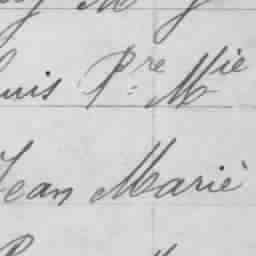 uis P.re Mie
Jean Marie